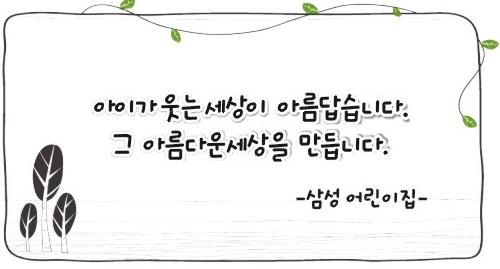 아이가 웃는 세상이 아름답습니다.
그 아름다운세상을 만듭니다.
-삼성 어린이집-